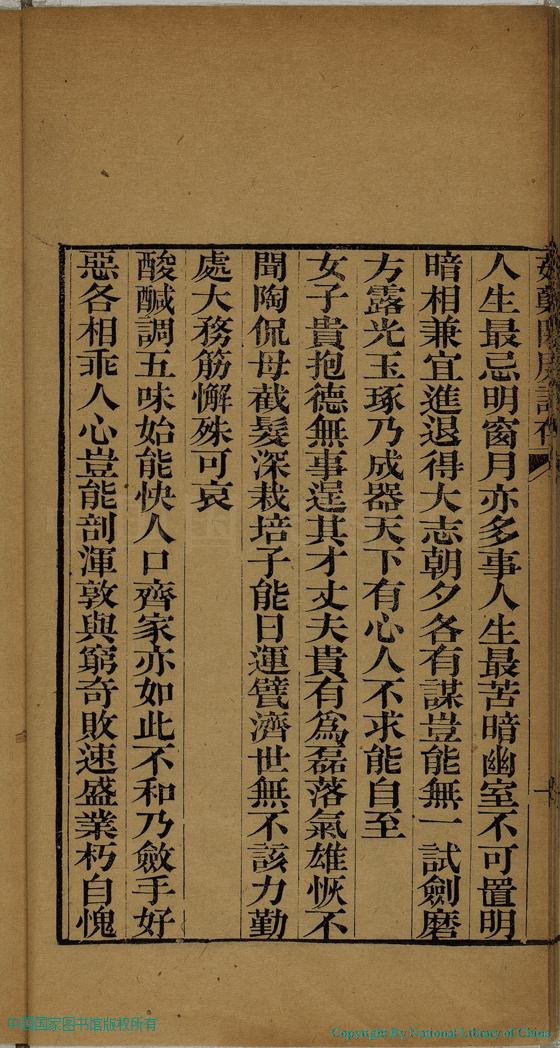 人生最忌明窗月亦多事人生最苦暗幽室不可置明
暗相兼宜進退得大志朝夕各有謀豈能無一試劍磨
方露光玉琢乃成器天下有心人不求能自至
女子貴抱德無事逞其才丈夫貴有為磊落氣雄恢不
聞陶侃母截髮深栽培子能日運甓濟世無不該力勤
處大務筋懈殊可哀
酸醎調五味始能快人口齊家亦如此不和乃斂手好
惡各相乖人心豈能剖渾敦與窮奇敗速盛業朽自愧
中国国家图书馆版权所有
Copyright By National Library of China